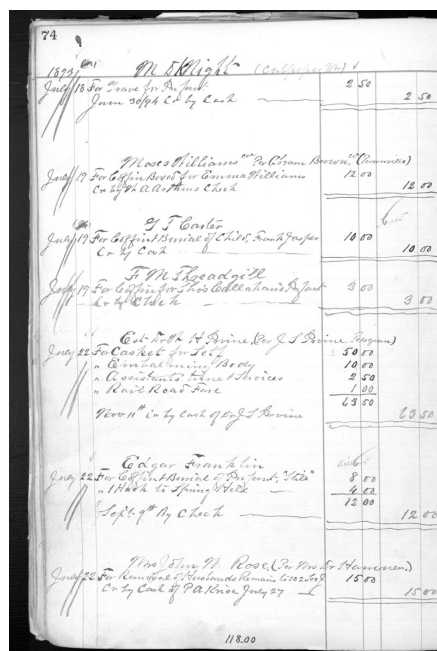 74
1893
M D Knight
July 18 For Grave for Infant 2 50
June 30/94 Cr by Cash 2 50
Moses Williams Per Chram Brown
July 17 For Coffin Box &c for Emma Williams 12 00
Cr by Check 12 00
G T Carter
July 17 For Coffin & Burial of Child, Frank Jasper 10 00
Cr by Cash 10 00
F. M Threadgill
July 19 For Coffin for Callahan's Infant 3 00
Cr by Check 3 00
Est H Irvine, (Per J S Irvine, Telegram)
July 22 For Casket for Self 50 00
" Embalming Body 10 00
" Assistants time & Services 2 50
" Rail Road Fare 1 00
63 50
Nov 11th Cr by Cash of Dr J S Irvine 63 50
Edgar Franklin
July 22 For Coffin & Burial of Infant, 8 00
" 1 Hack to Spring Hill 4 00
12 00
Sept 9th By Check 12 00
Mrs John W Rose, (Per Mrs Dr Hammer.)
July 22 For Removal of Husbands Remains to 15 00
Cr by Cash of P A Krise July 27 15 00
118.00